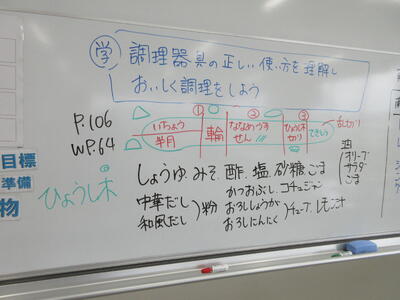 学 調理器具の正しい使い方を理解し
おいしく調理をしよう
P.106
WP.64
① ② ③
いちょう
半月
輪
ななめうす
せん
ひょうし木
切り
乱切り
目標
準備
物
ひょうし木
しょうゆ.みそ.酢.塩.砂糖.ごま
中華だし
和風だし
)粉
かつおぶし.コチュジャン
おろししょうが
おろしにんにく
)チューブ
油
オリーブ
サラダ
ごま